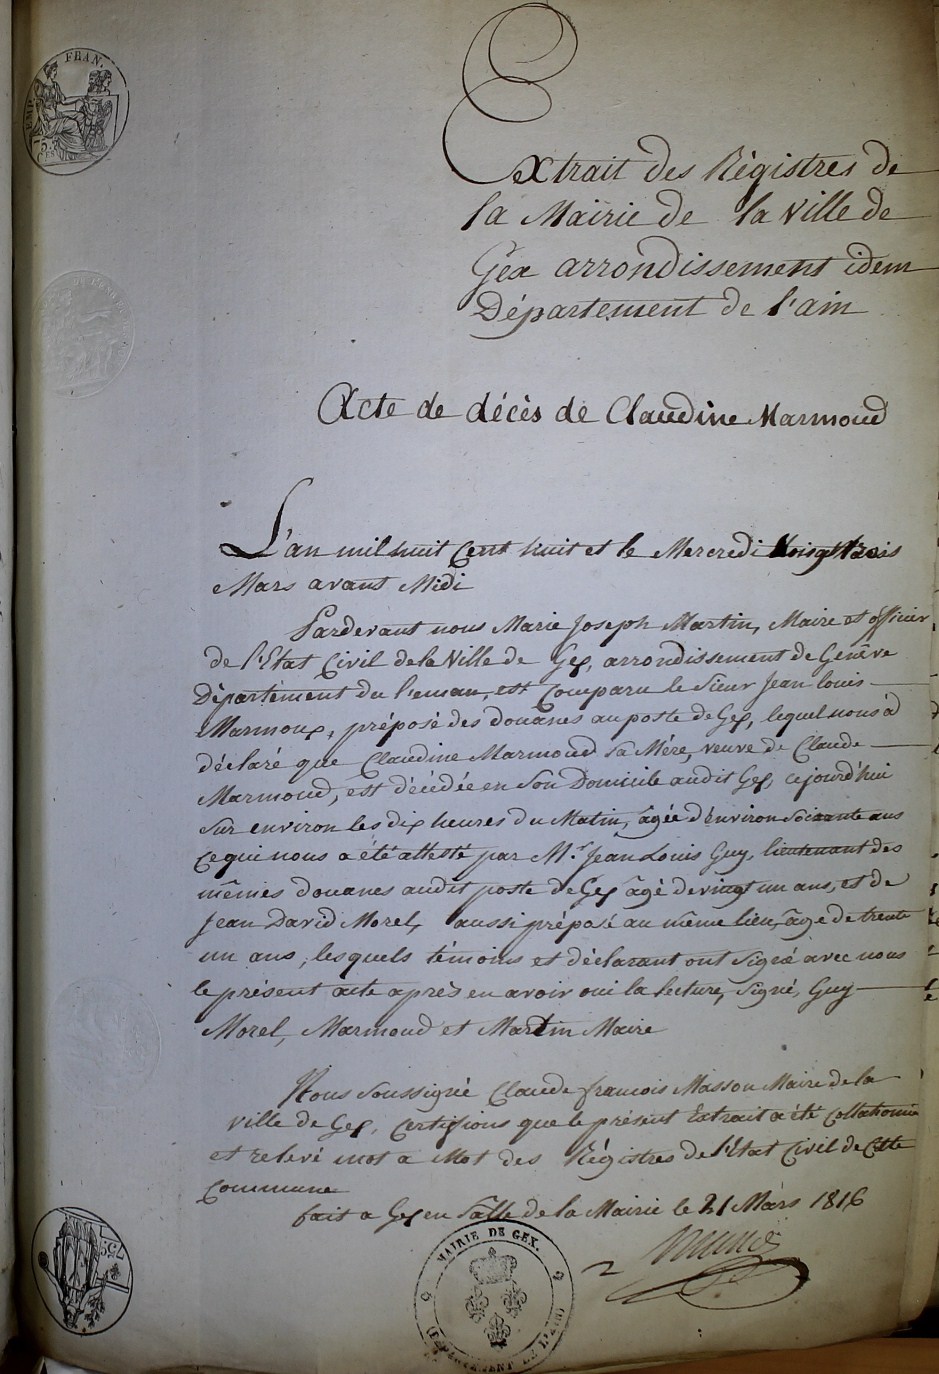 EMP. FRAN.
75 C.ES
Extrait des Régistres de
la Mairie de la Ville de
Gex arrondissement idem
Département de l'ain
Acte de décès de Claudine Marmoud
L'an mil huit cent huit et le Mercredi vingt trois
Mars avant Midi
Pardevant nous Marie Joseph Martin, Maire et officier
de l'Etat Civil de la Ville de Gex, arrondissement de Genêve
Département du Léman, est comparu le Sieur Jean louis
Marmoux, préposé des douanes au poste de Gex, lequel nous à
déclaré que Claudine Marmoud sa Mére, veuve de Claude
Marmoud, est décédée en son Domicile audit Gex, cejourd'hui
sur environ les dix heures du Matin, âgée d'environ Soixante ans
ce qui nous a été attesté par M.r Jean Louis Guy, lieutenant des
mêmes douanes audit poste de Gex âgé de vingt un ans, et de
Jean David Morel, aussi préposé au même lieu, âgé de trente
un ans, lesquels témoins et déclarant ont signé avec nous
le présent acte après en avoir oui la lecture, Signé, Guy
Morel, Marmoud et Martin Maire
Nous Soussigné Claude françois Masson Maire de la
ville de Gex, certifions que le présent Extrait a été collationné
et relevé mot a Mot des Régistres de l'Etat Civil de Cette
Commune
fait a Gex en Salle de la Mairie le 21 Mars 1816
MAIRIE DE GEX.
(DÉPARTEMENT DE L'AIN)
75